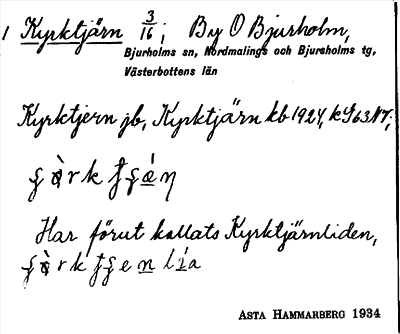 1 Kyrktjärn 3/16; By O Bjurholm,
Bjurholms sn, Nordmalings och Bjurholms tg,
Västerbottens län
Kyrktjern jb, Kyrktjärn kb 1924,
Har förut kallats Kyrktjärnliden,
ASTA HAMMARBERG 1934